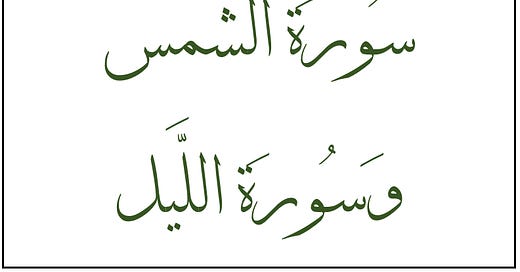 سُورَةَ الشمس
وَسُورَةَ اللَّيل